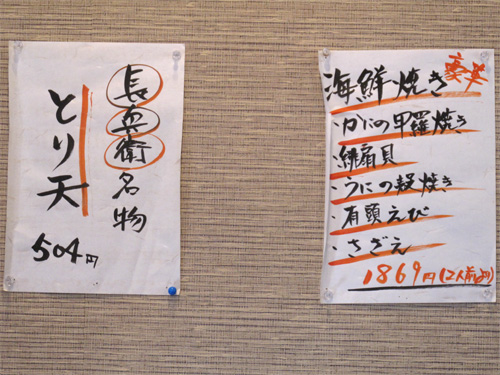 長兵衛名物
とり天
504円
豪華
海鮮焼き
・かにの甲羅焼き
・緋扇貝
・うにの殻焼き
・有頭えび
・さざえ
1869円(2人前より)